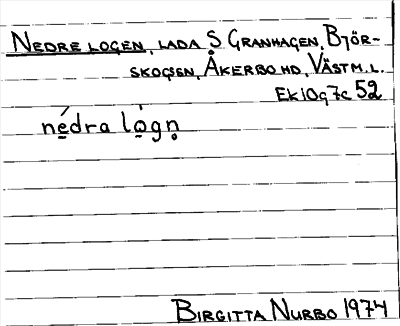 NEDRE LOGEN, LADA S GRANHAGEN, BJÖR-
SKOGSN, ÅKERBO HD, VÄSTM. L.
Ek 10g7c 52
né̱dra lò̱gn̥
BIRGITTA NURBO 1974